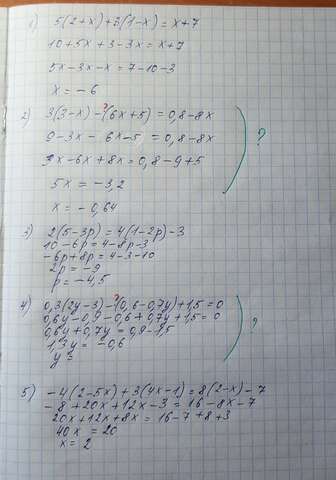 1) 5(2+x)+3(1-x)=x+7
10+5x+3-3x=x+7
5x-3x-x=7-10-3
x=-6
2) 3(3-x)-(6x+5)=0,8-8x
9-3x-6x-5=0,8-8x
-3x-6x+8x=0,8-9+5
5x=-3,2
x=-0,64
?
3) 2(5-3p)=4(1-2p)-3
10-6p=4-8p-3
-6p+8p=4-3-10
2p=-9
p=-4,5
4) 0,3(2y-3)-(0,6-0,7y)+1,5=0
0,6y-0,9-0,6+0,7y+1,5=0
0,6y+0,7y=0,9-1,5
1,3y=-0,6
y=
?
5) -4(2-5x)+3(4x-1)=8(2-x)-7
-8+20x+12x-3=16-8x-7
20x+12x+8x=16-7+8+3
40x=20
x=2